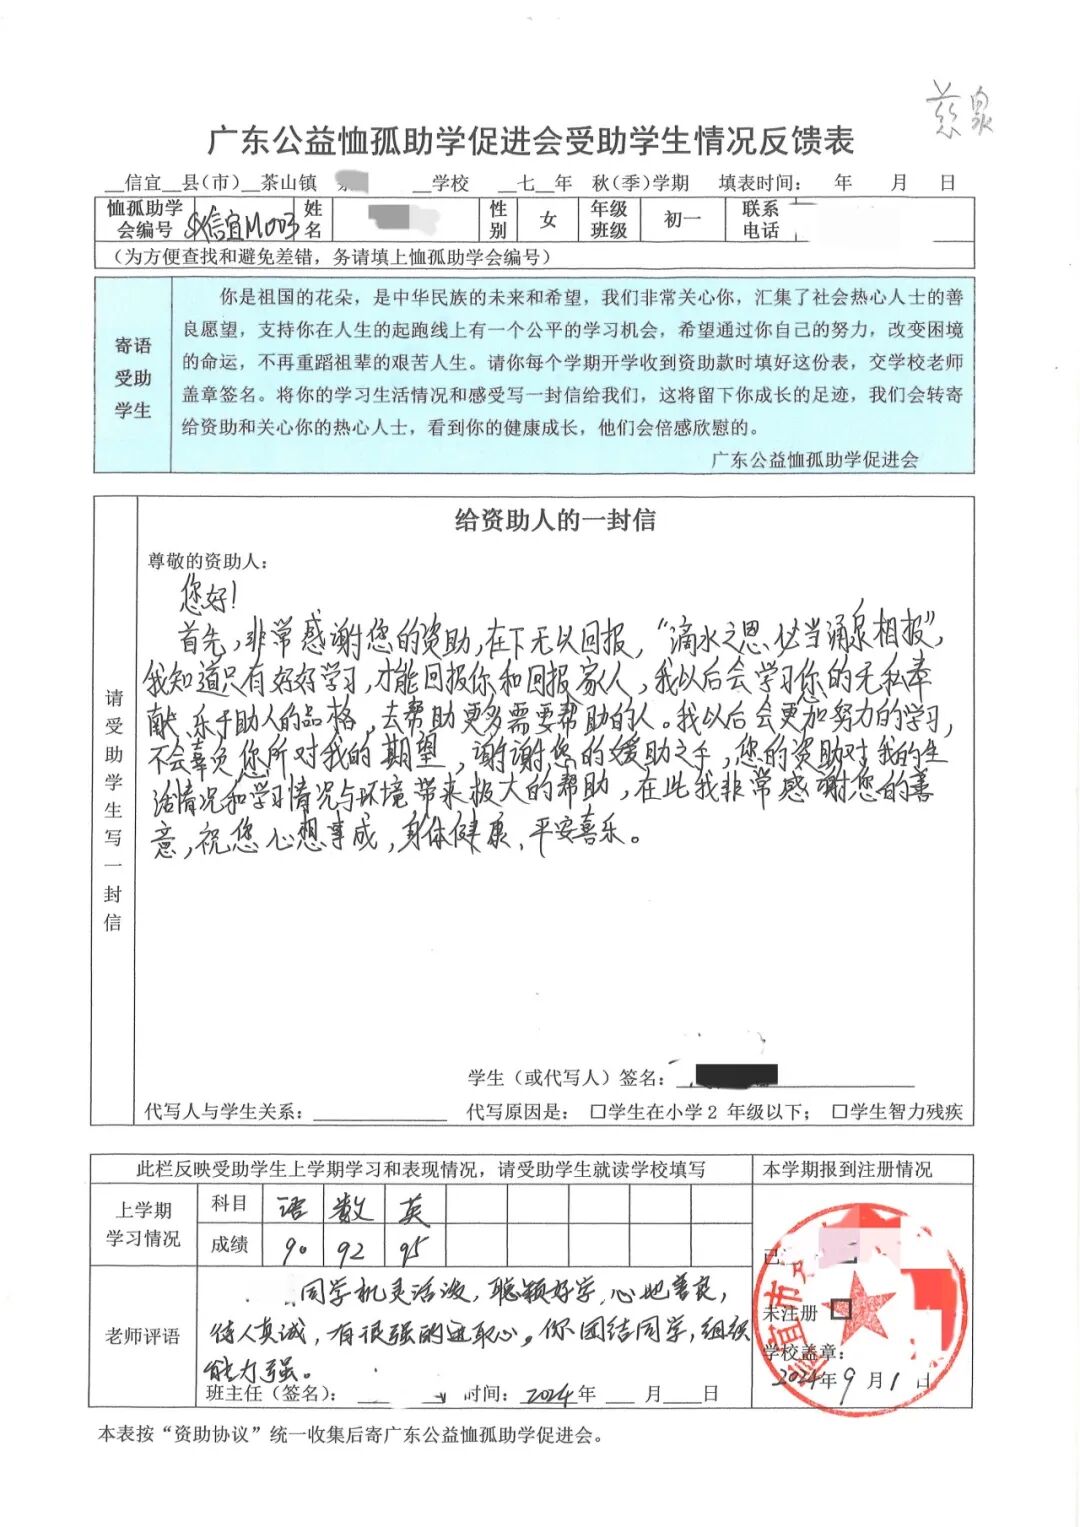 慈泉
广东公益恤孤助学促进会受助学生情况反馈表
信宜 县(市) 茶山镇 学校 七 年 秋(季)学期 填表时间: 年 月 日
恤孤助学会编号 信宜M003 姓名 性别 女 年级班级 初一 联系电话
(为方便查找和避免差错，务请填上恤孤助学会编号)
寄语受助学生
你是祖国的花朵，是中华民族的未来和希望，我们非常关心你，汇集了社会热心人士的善
良愿望，支持你在人生的起跑线上有一个公平的学习机会，希望通过你自己的努力，改变困境
的命运，不再重蹈祖辈的艰苦人生。请你每个学期开学收到资助款时填好这份表，交学校老师
盖章签名。将你的学习生活情况和感受写一封信给我们，这将留下你成长的足迹，我们会转寄
给资助和关心你的热心人士，看到你的健康成长，他们会倍感欣慰的。
广东公益恤孤助学促进会
请受助学生写一封信
给资助人的一封信
尊敬的资助人：
您好!
首先，非常感谢您的资助，在下无以回报，“滴水之恩，必当涌泉相报”，
我知道只有好好学习，才能回报你和回报家人，我以后会学习您的无私奉
献、乐于助人的品格，去帮助更多需要帮助的人。我以后会更加努力的学习，
不会辜负您所对我的期望，谢谢您的援助之手，您的资助对我的生
活情况和学习情况与环境带来极大的帮助，在此我非常感谢您的善
意，祝您心想事成，身体健康、平安喜乐。
学生（或代写人）签名：
代写人与学生关系： 代写原因是： □学生在小学2 年级以下； □学生智力残疾
此栏反映受助学生上学期学习和表现情况，请受助学生就读学校填写 本学期报到注册情况
上学期学习情况 科目 语 数 英
成绩 90 92 95
老师评语
同学机灵活泼，聪颖好学，心地善良，
待人真诚，有很强的进取心。你团结同学，组织
能力强。
班主任（签名）： 时间：2024年 月 日
已
未注册 □
学校盖章：
2024年 9 月 1 日
本表按“资助协议”统一收集后寄广东公益恤孤助学促进会。